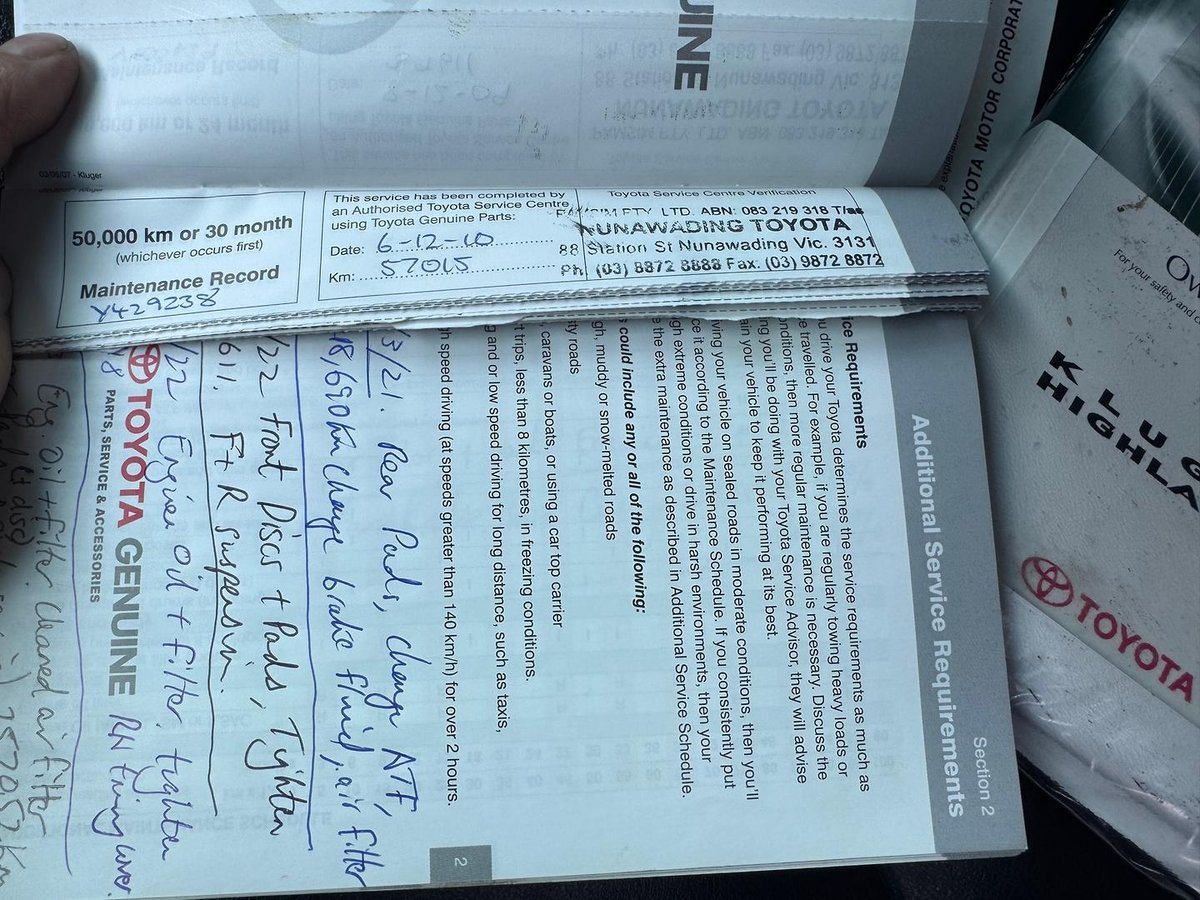 UINE
TOYOTA MOTOR CORPORAT
03/05/07 - Kluger
50,000 km or 30 month
(whichever occurs first)
Maintenance Record
Y429238
This service has been completed by
an Authorised Toyota Service Centre
using Toyota Genuine Parts:
Date: 6-12-10
Km: 57015
Toyota Service Centre Verification
PTY LTD. ABN: 083 219 318
NUNAWADING TOYOTA
88 Station St Nunawading Vic. 3131
Ph: (03) 8872 8888 Fax: (03) 9872 8872
Section 2
Additional Service Requirements
ice Requirements
u drive your Toyota determines the service requirements as much as
e travelled. For example, if you are regularly towing heavy loads or
onditions, then more regular maintenance is necessary. Discuss the
ng you'll be doing with your Toyota Service Advisor, they will advise
ain your vehicle to keep it performing at its best.
ving your vehicle on sealed roads in moderate conditions, then you'll
ce it according to the Maintenance Schedule. If you consistently put
gh extreme conditions or drive in harsh environments, then your
e the extra maintenance as described in Additional Service Schedule.
s could include any or all of the following:
gh, muddy or snow-melted roads
ty roads
, caravans or boats, or using a car top carrier
t trips, less than 8 kilometres, in freezing conditions.
g and or low speed driving for long distance, such as taxis,
gh speed driving (at speeds greater than 140 km/h) for over 2 hours.
2
3/21. Rear Pads, change ATF,
18,690km change brake fluid, air filter
/22 Front Discs + Pads, Tighten
611. F+R suspension.
/22 Engine oil + filter. tighten
RH timing cover.
TOYOTA GENUINE
PARTS, SERVICE & ACCESSORIES
Eng. oil + filter. Cleaned air filter
257052km
Ow
For your safety and c
KLUG
HIGHLA
TOYOTA